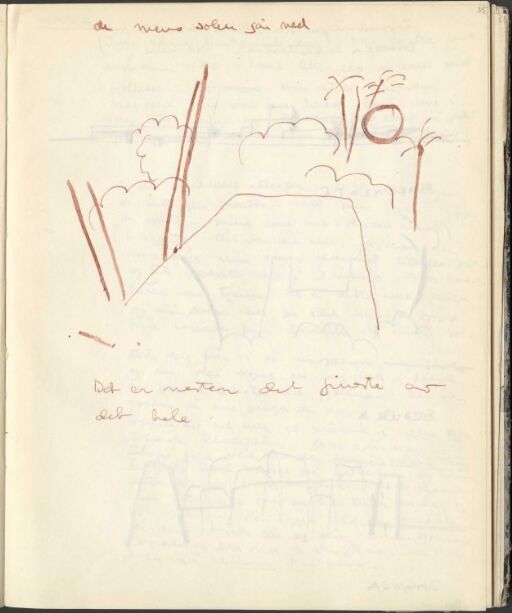 35
der mens solen går ned
Det er nesten det fineste av
det hele